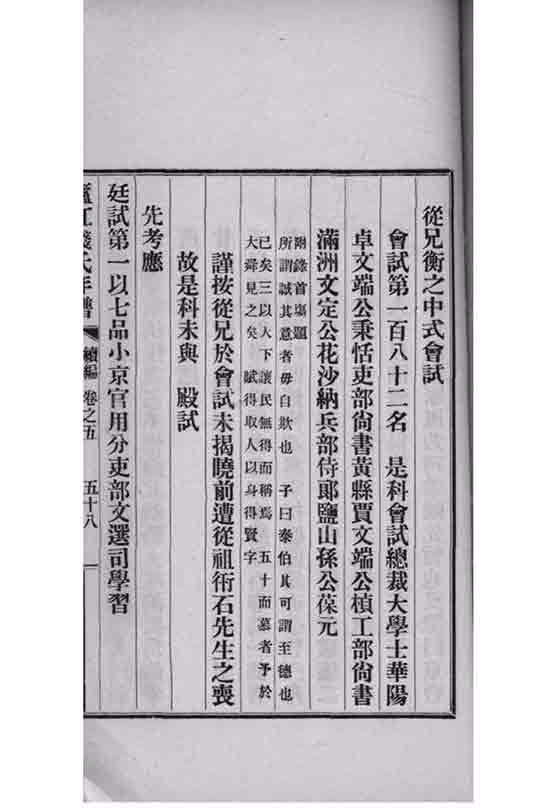 從兄衡之中式會試
會試第一百八十二名　是科會試總裁大學士華陽
卓文端公秉恬吏部尙書黃縣賈文端公楨工部尙書
滿洲文定公花沙納兵部侍郞鹽山孫公葆元
附錄首塲題
所謂誠其意者毋自欺也　子曰泰伯其可謂至德也
已矣三以天下讓民無得而稱焉　五十而慕者予於
大舜見之矣　賦得取人以身得賢字
謹按從兄於會試未揭曉前遭從祖術石先生之喪
故是科未與　殿試
先考應
廷試第一以七品小京官用分吏部文選司學習
廬江錢氏年譜　續編　卷之五　五十八